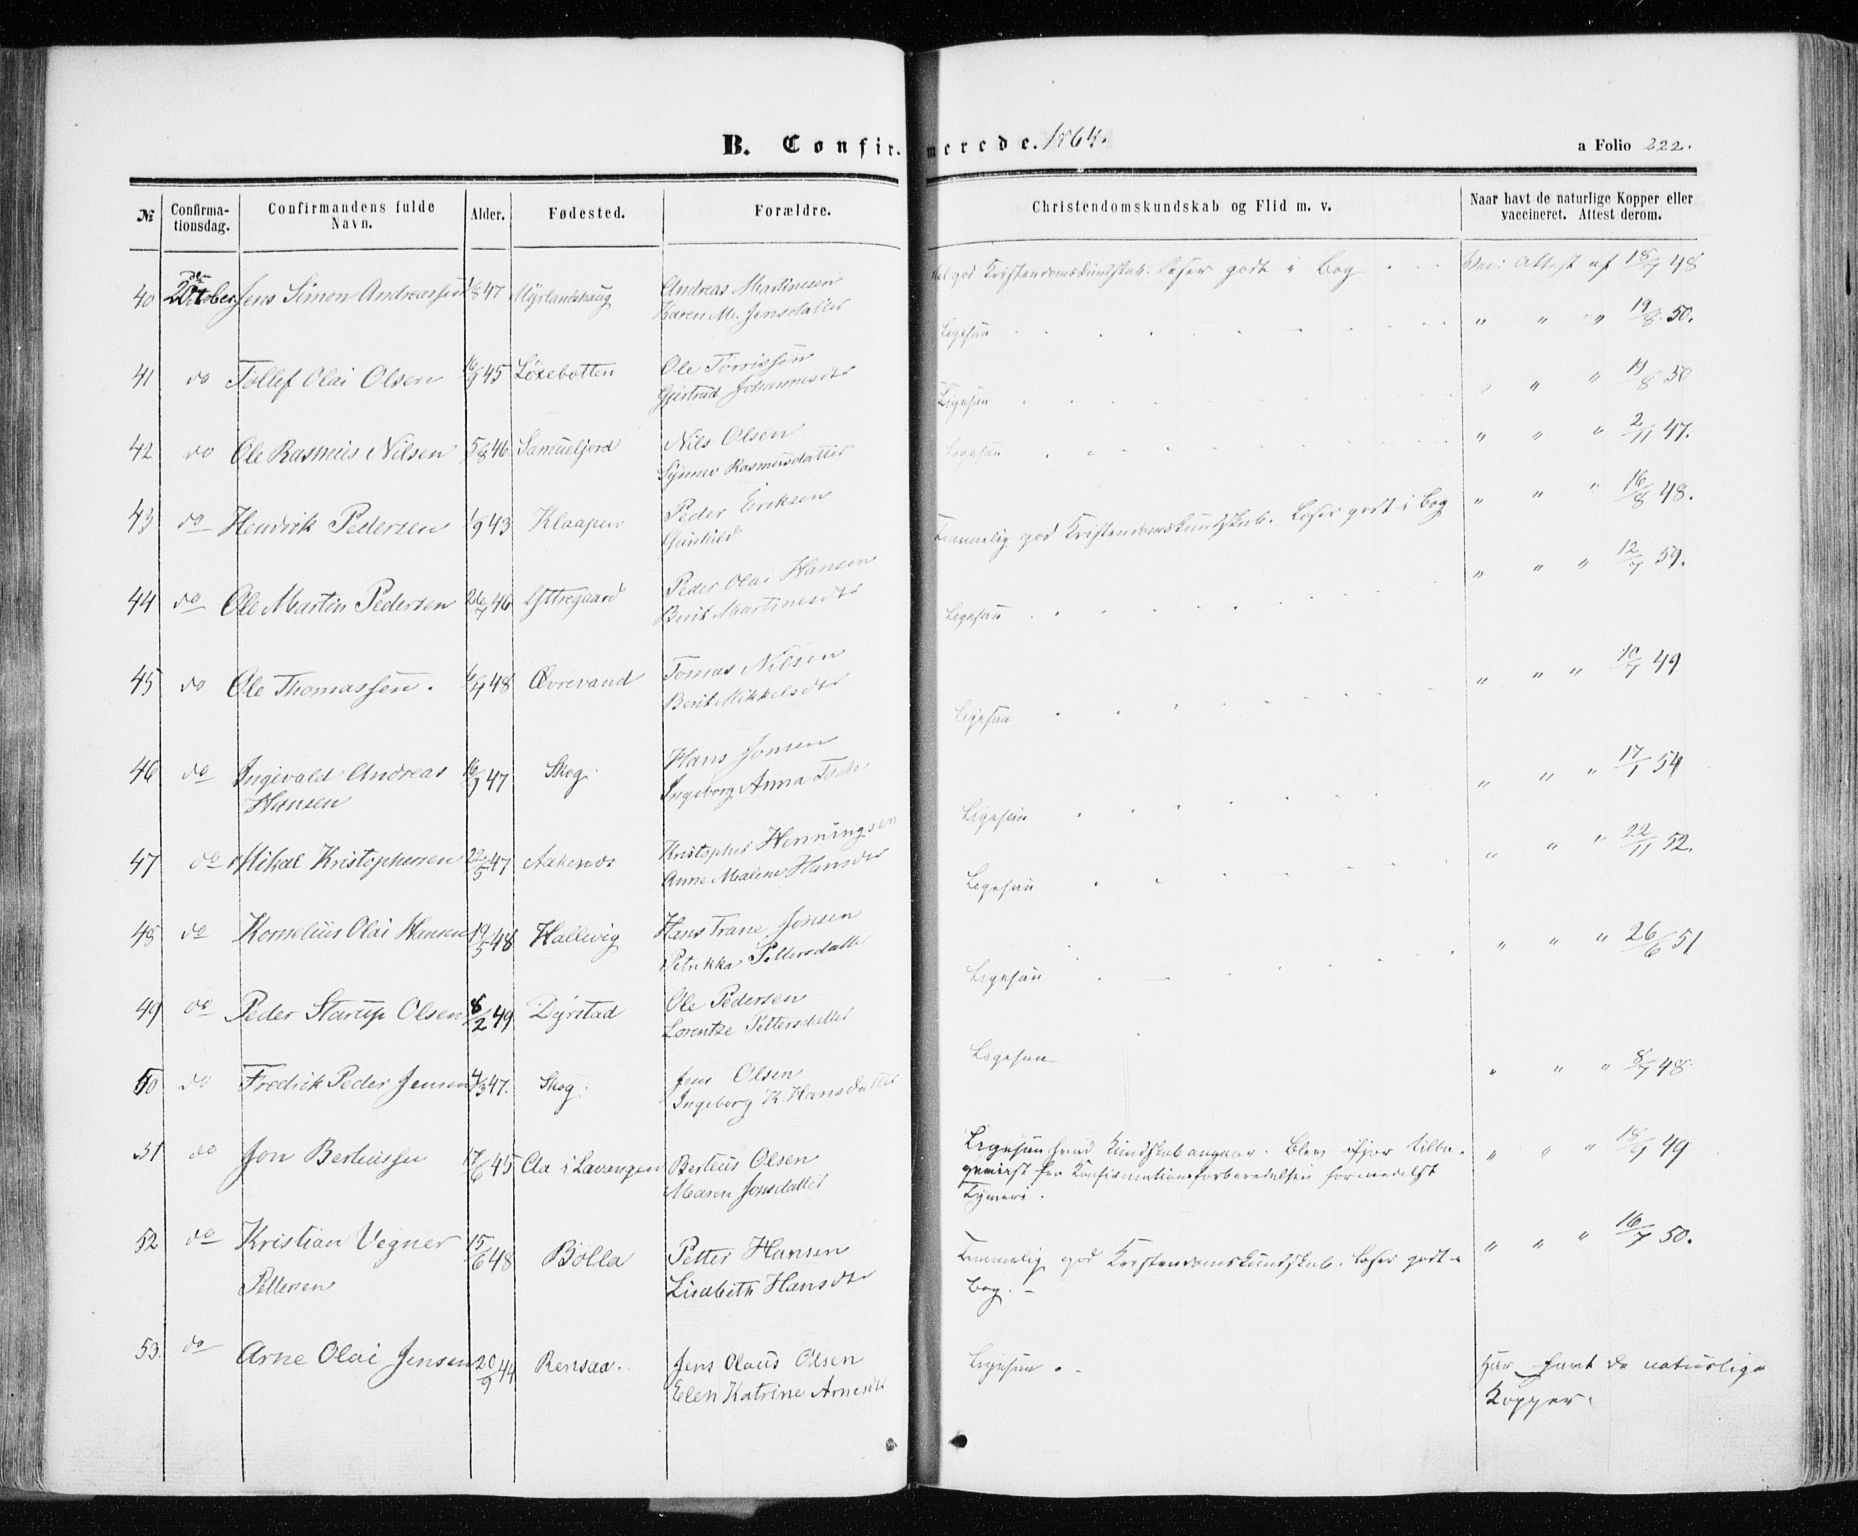 B. Confirmerede. 1864.
a Folio 222.
№
Confirmationsdag.
Confirmandens fulde Navn.
Alder.
Fødested.
Forældre.
Christendomskundskab og Flid m. v.
Naar havt de naturlige Kopper eller vaccineret. Attest derom.
40 2den October Jens Simon Andreassen 1/8 47 Myrlandshaug Andreas Martinesen
Karen M. Jensdatter
god Kristendomskundskab. Læser godt i Bog Vac: Attest af 18/7 48
41 do Tollef Olai Olsen 16/9 45 Löxebotten Ole Torrissen
Gjertrud Johannesdtr
Ligesaa " " " 19/8 50.
42 do Ole Rasmus Nilsen 5/8 46 Samueljord Nils Olsen
Synnev Rasmusdatter
Ligesaa " " " 19/8 50
43 do Hendrik Pedersen 1/9 43 Klaapen Peder Eriksen
Gunhild
Ligesaa " " " 2/11 47.
44 do Ole Martin Pedersen 26/7 46 Yttregaard Peder Olai Hansen
Berit Martinesdtr
Temmelig god Kristendomskundskab. Læser godt i Bog " " " 16/8 48.
45 do Ole Thomassen. 1/7 48 Øvrevand Tomas Nilsen
Berit Mikkelsdtr
Ligesaa " " " 12/7 59.
46 do Ingevald Andreas
Hansen
16/9 47 Skog. Hans Jonsen
Ingeborg Anna
Ligesaa " " " 10/7 49
47 do Mikal Kristophersen 22/5 47 Aakenes Kristopher Henningsen
Anne Malene Hansdtr
Ligesaa " " " 17/7 54
48 do Kornelius Olai Hansen 19/5 48 Hallevig Hans Trane Jonsen
Petrikka Pettersdatter
Ligesaa " " 22/11 52.
49 do Peder Starup Olsen 8/2 49 Dyrstad Ole Pedersen
Lorentze Pettersdatter
Ligesaa " " " 26/6 51
50 do Fredrik Peder Jensen 4/3 47. Skog. Jens Olsen
Ingeborg K. Hansdatter
Ligesaa " " " 8/7 48
51 do Jon Berteussen 17/6 45 Aa i Lavangen Berteus Olsen
Maren Jonsdatter
Ligesaa hvad Kundskab angaar. Blev ifjor tilba-
geviist fra Konfirmationsforberedelsen formedelst
Tyveri.
" " " 18/9 49
52 do Kristian Vegner
Pettersen
15/6 48 Bolla Petter Hansen
Lisabeth Hansdtr
Temmelig god Kristendomskundskab. Læser godt i
Bog.
" " " 16/7 50.
53. do Arne Olai Jensen 20/9 44 Rensaa. Jens Olaus Olsen
Elen Katrine Arnesdtr
Ligesaa. Har havt de naturlige
Kopper.